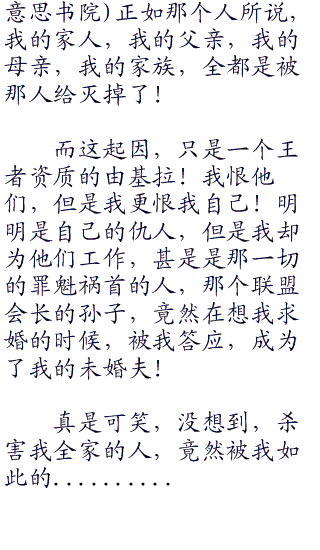 意思书院)正如那个人所说，
我的家人，我的父亲，我的
母亲，我的家族，全都是被
那人给灭掉了！
而这起因，只是一个王
者资质的由基拉！我恨他
们，但是我更恨我自己！明
明是自己的仇人，但是我却
为他们工作，甚是是那一切
的罪魁祸首的人，那个联盟
会长的孙子，竟然在想我求
婚的时候，被我答应，成为
了我的未婚夫！
真是可笑，没想到，杀
害我全家的人，竟然被我如
此的..........